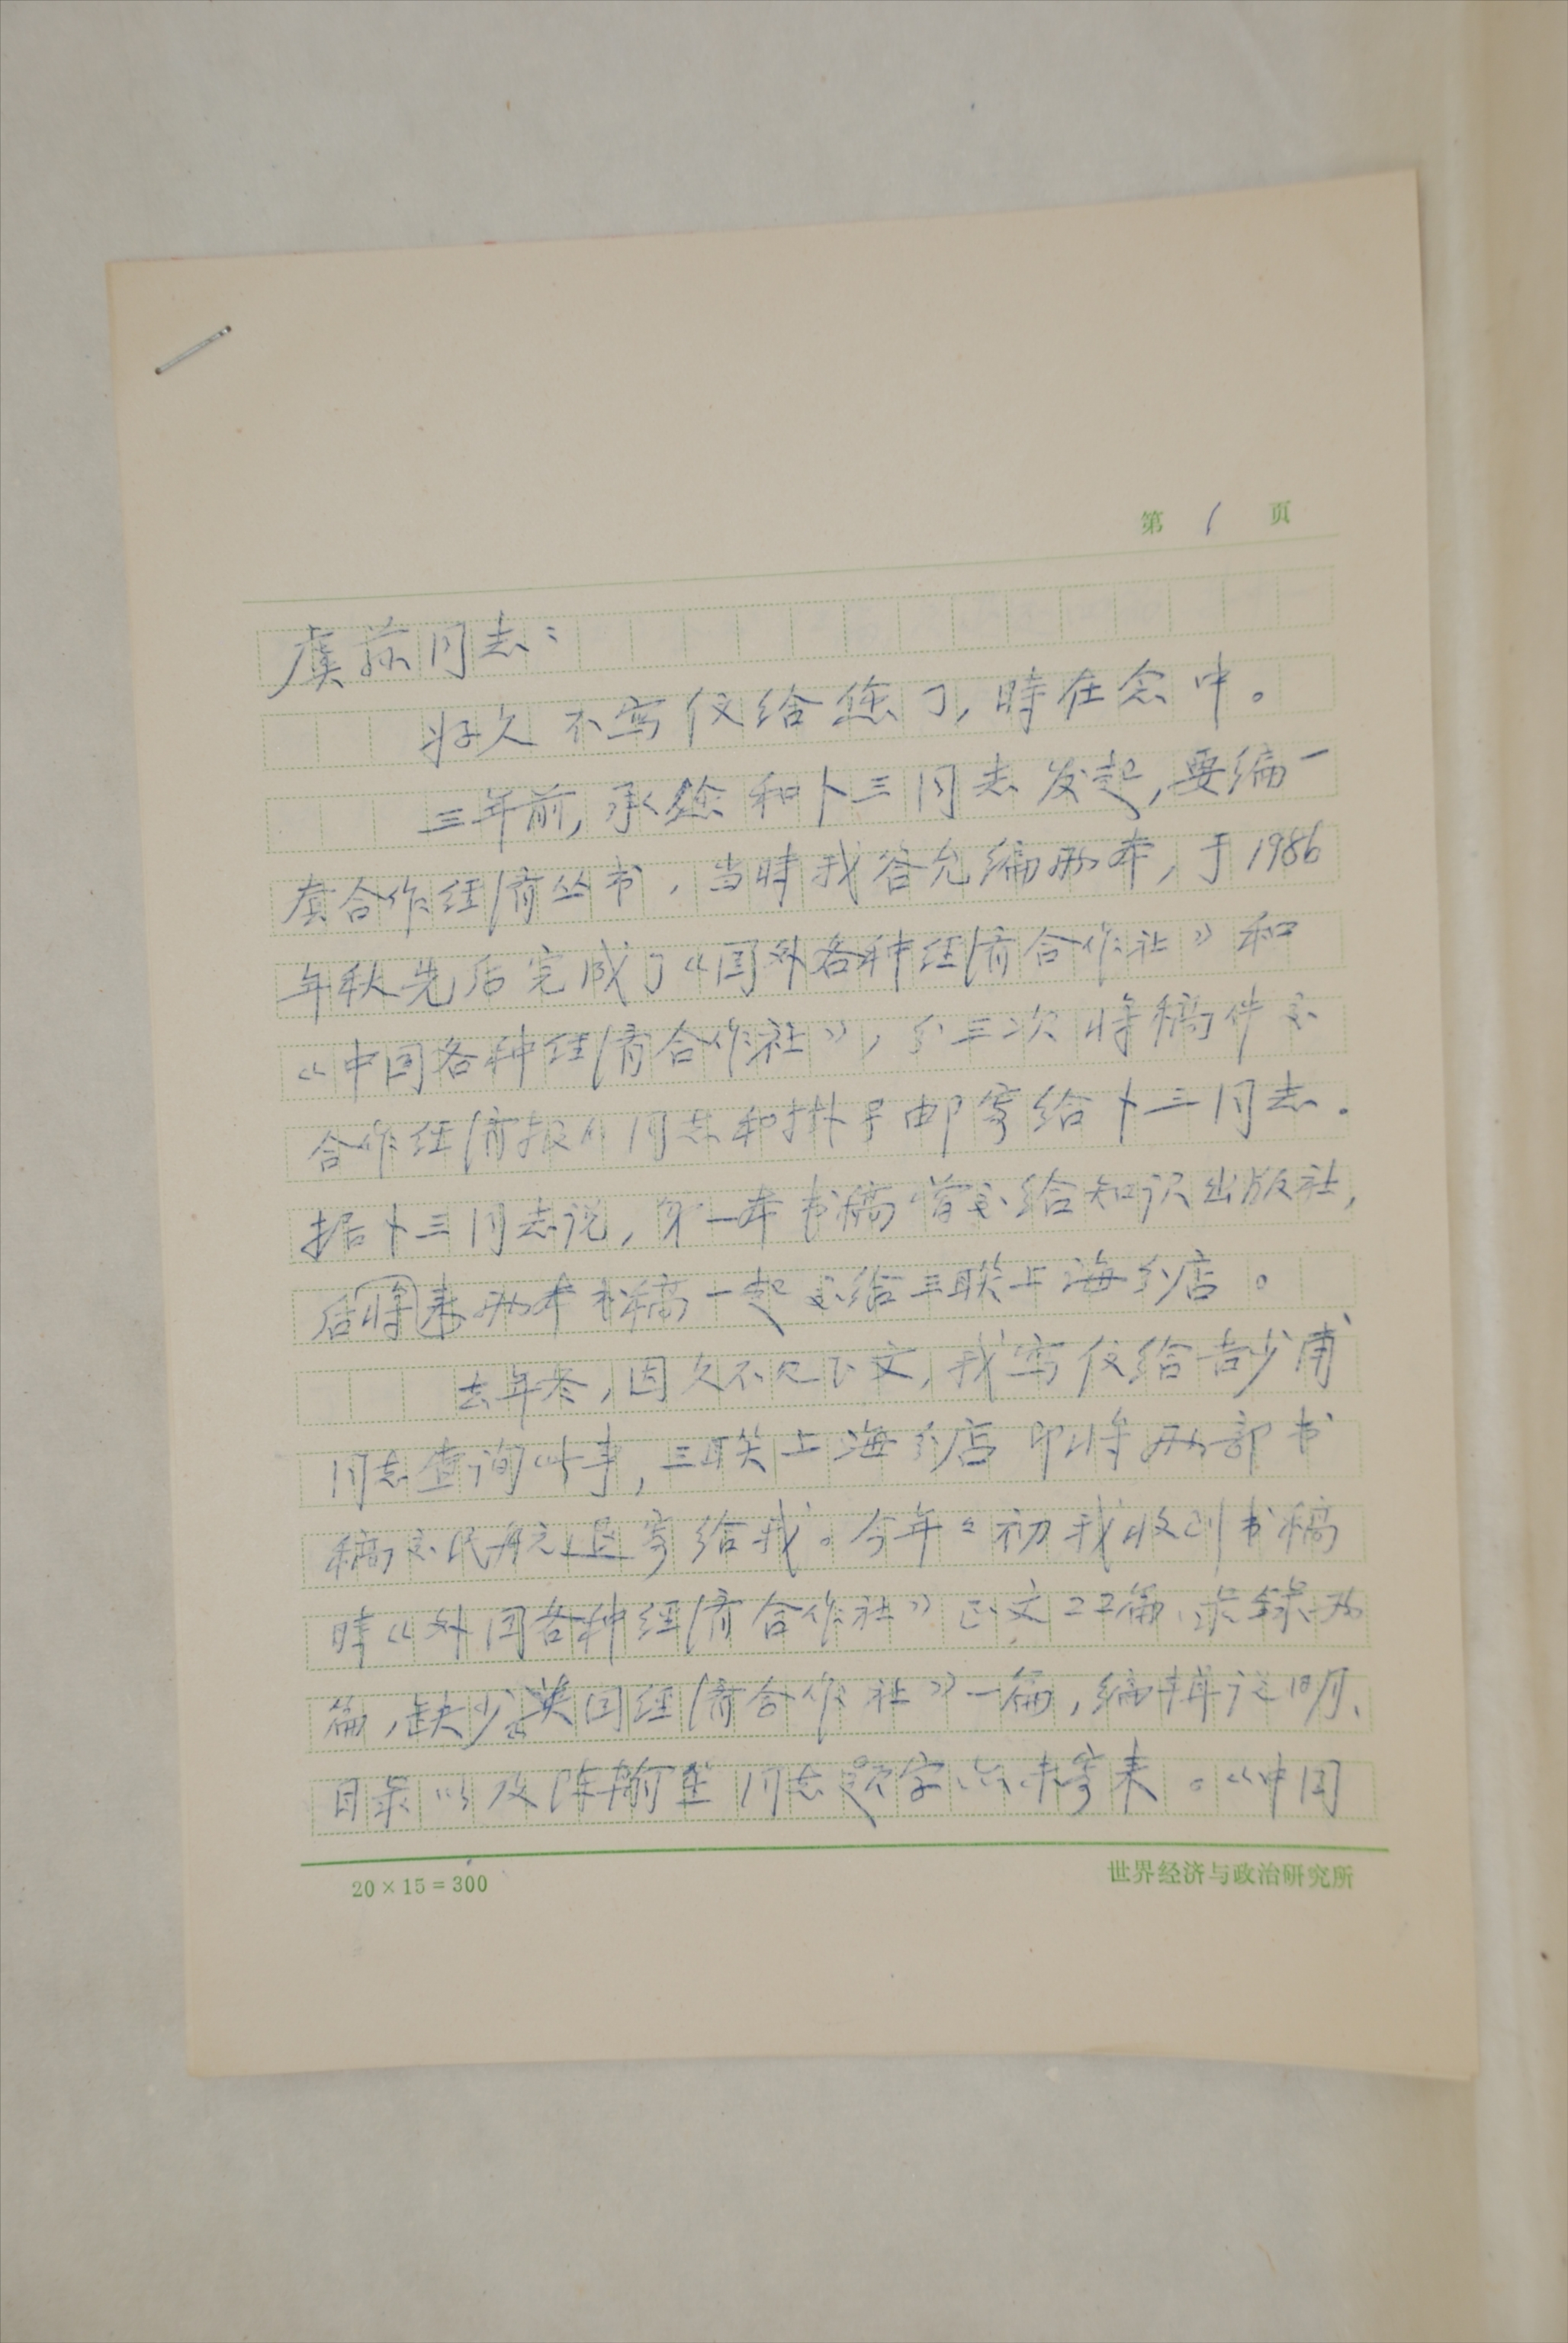 第 1 页
虞孙同志：
好久不写信给您了，時在念中。
三年前，承您和卜三同志发起，要编一
套合作经济丛书，当時我答允编两本，于1986
年秋先后完成了《国外各种经济合作社》和
《中国各种经济合作社》，分三次将稿件交
合作经济报同志和挂号邮寄给卜三同志。
据卜三同志说，第一本书稿曾交给知识出版社，
后将两本书稿一起交给三联上海分店。
去年冬，因久不见下文，我写信给吉少甫
同志查询此事，三联上海分店即将两部书
稿交民航退寄给我。今年初我收到书稿
時《外国各种经济合作社》正文22篇、录两
篇，缺少英国经济合作社》一篇，编辑说明、
目录以及陈翰笙同志题字亦未寄来。《中国
20×15=300
世界经济与政治研究所